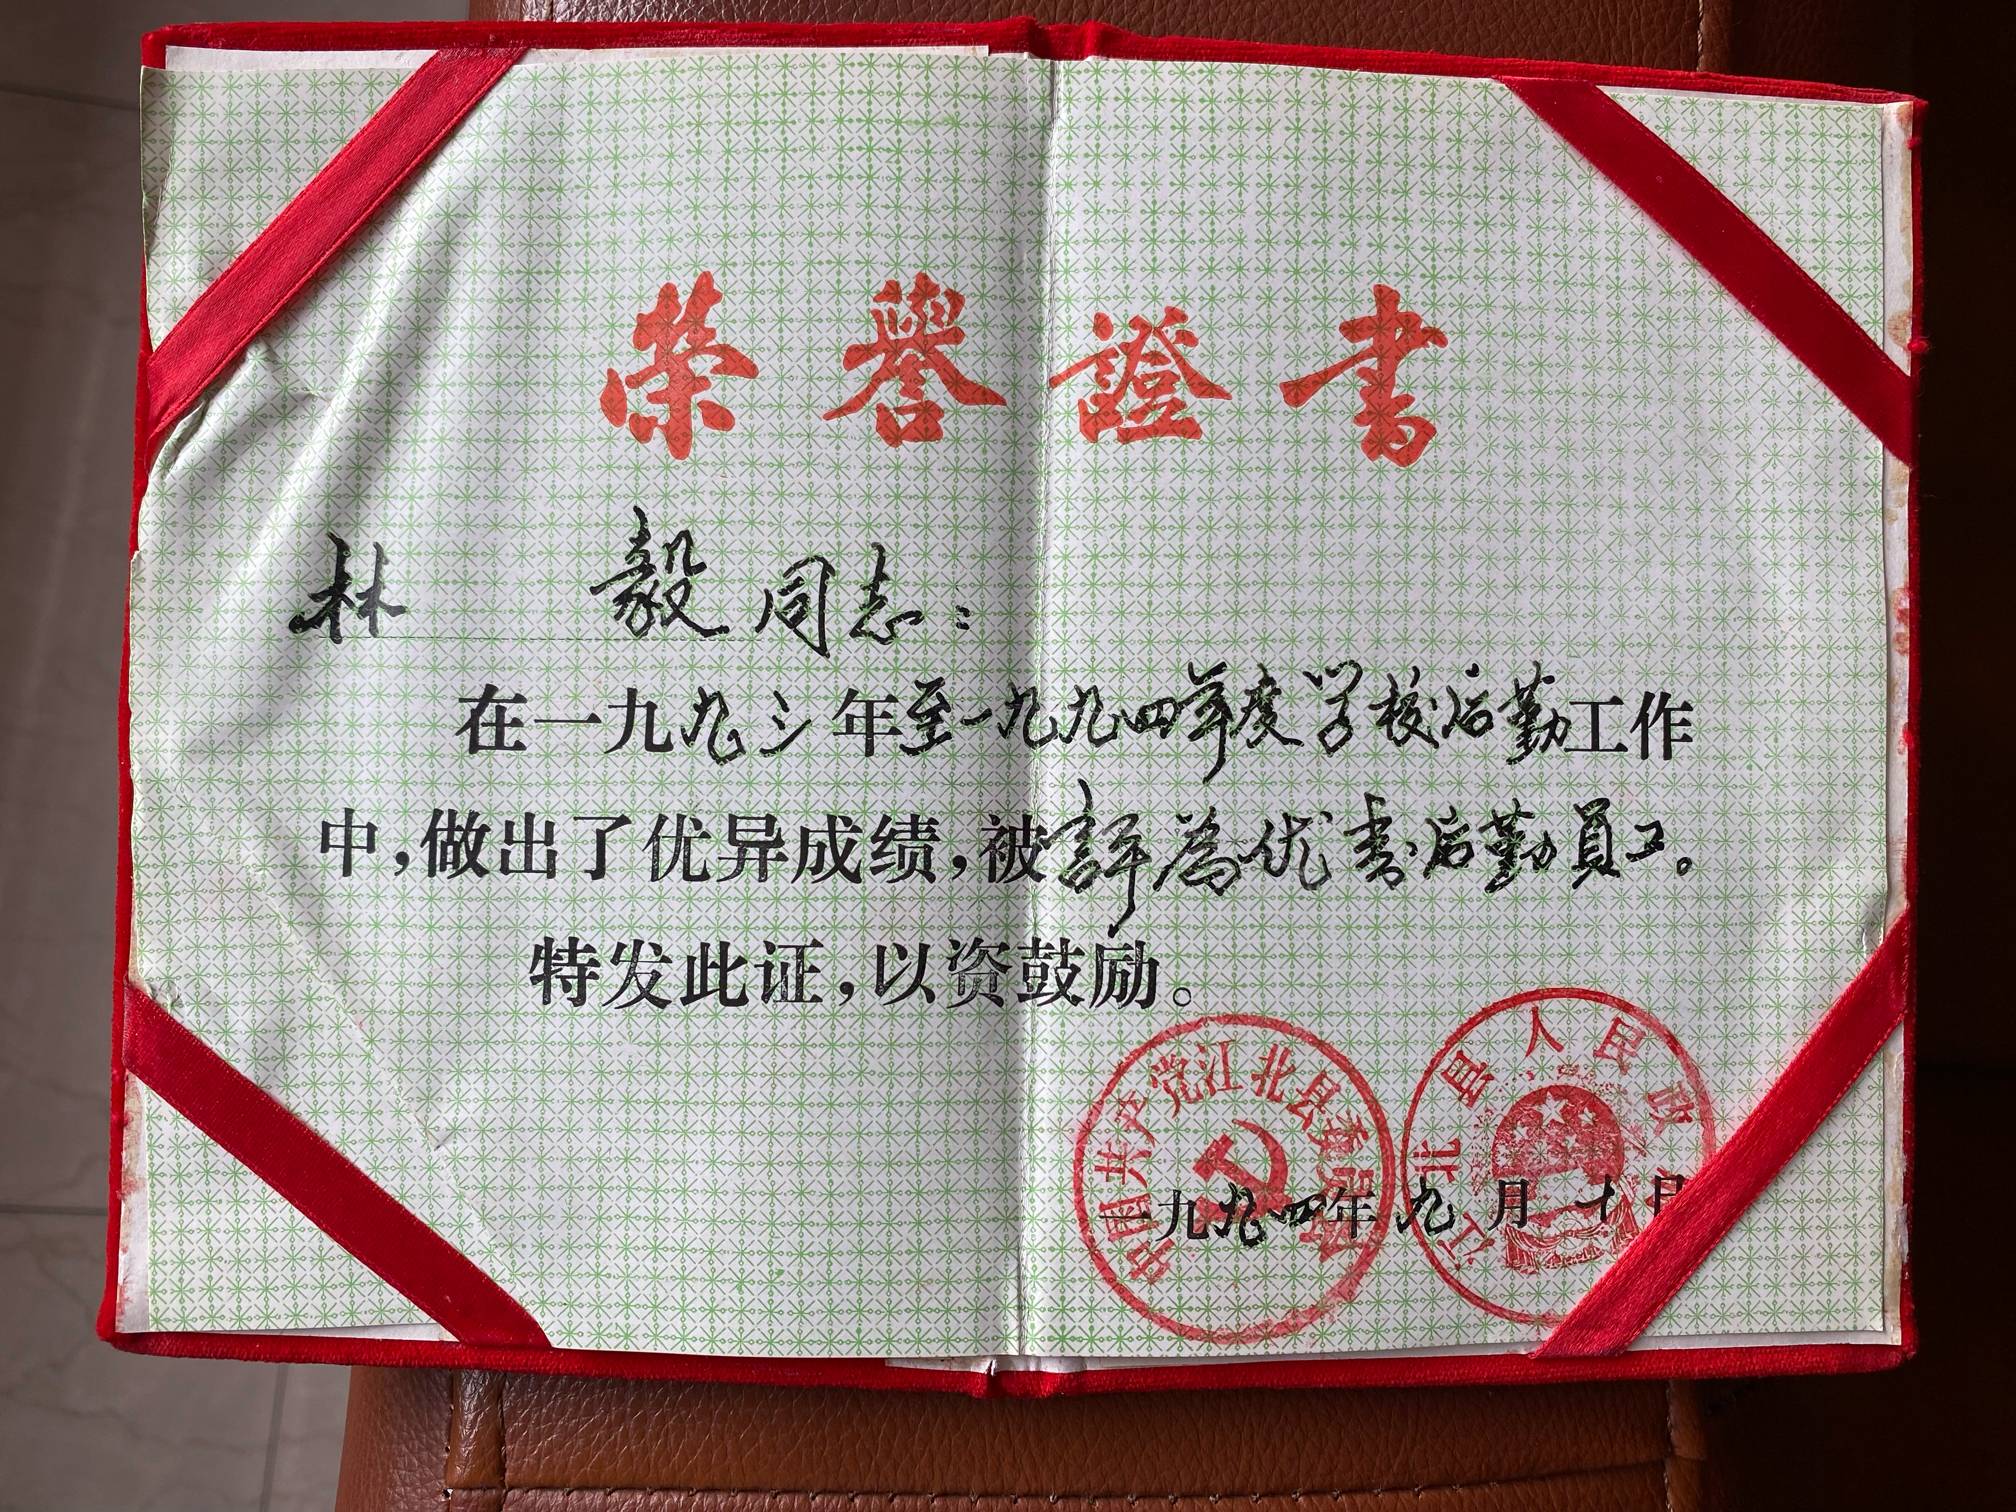 荣譽證書
林毅同志：
在一九九三年至一九九四年度学校后勤工作
中，做出了优异成绩，被評為优秀后勤員工。
特发此证，以资鼓励。
中国共产党江北县委员会
江北县人民政
一九九四年九月十日